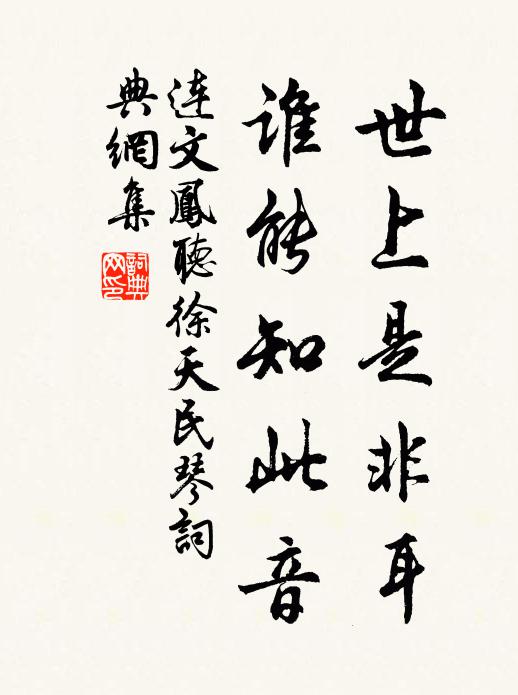 世上是非耳
谁能知此音
连文鳳聽徐天民琴詞
典網集
詞典
网印